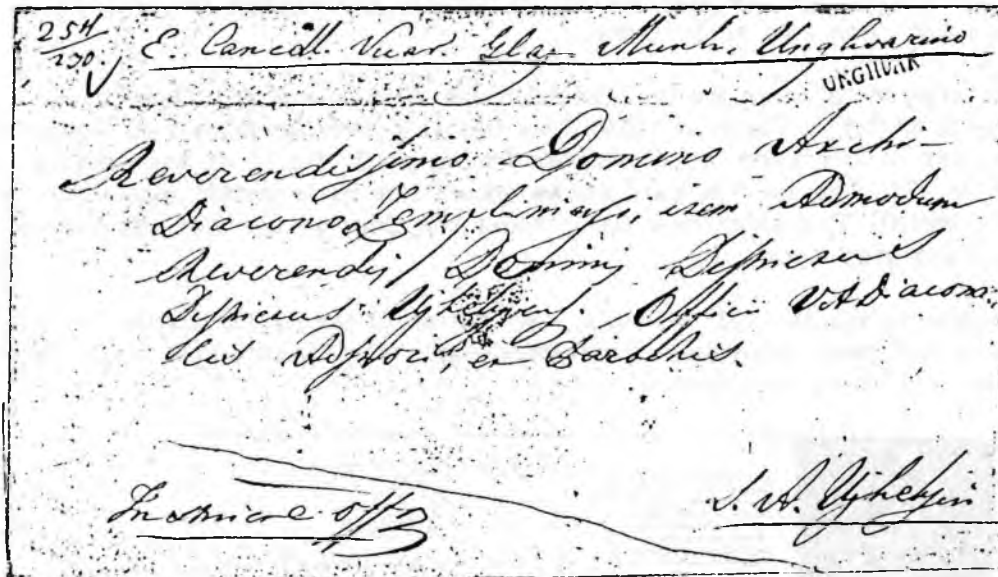 254
190.
E. Cancell. Vicar. Glis Munk. Unghvarino
UNGHVAR
Reverendissimo Domino Archi-
Diacono Zempliniensi, item Admodum
Reverendis Dominis Districtus
Districtus Ujhelyiens. Officii V A Diacona-
lis et Parochis.
In Officiose offo
S. A. Ujhelyini